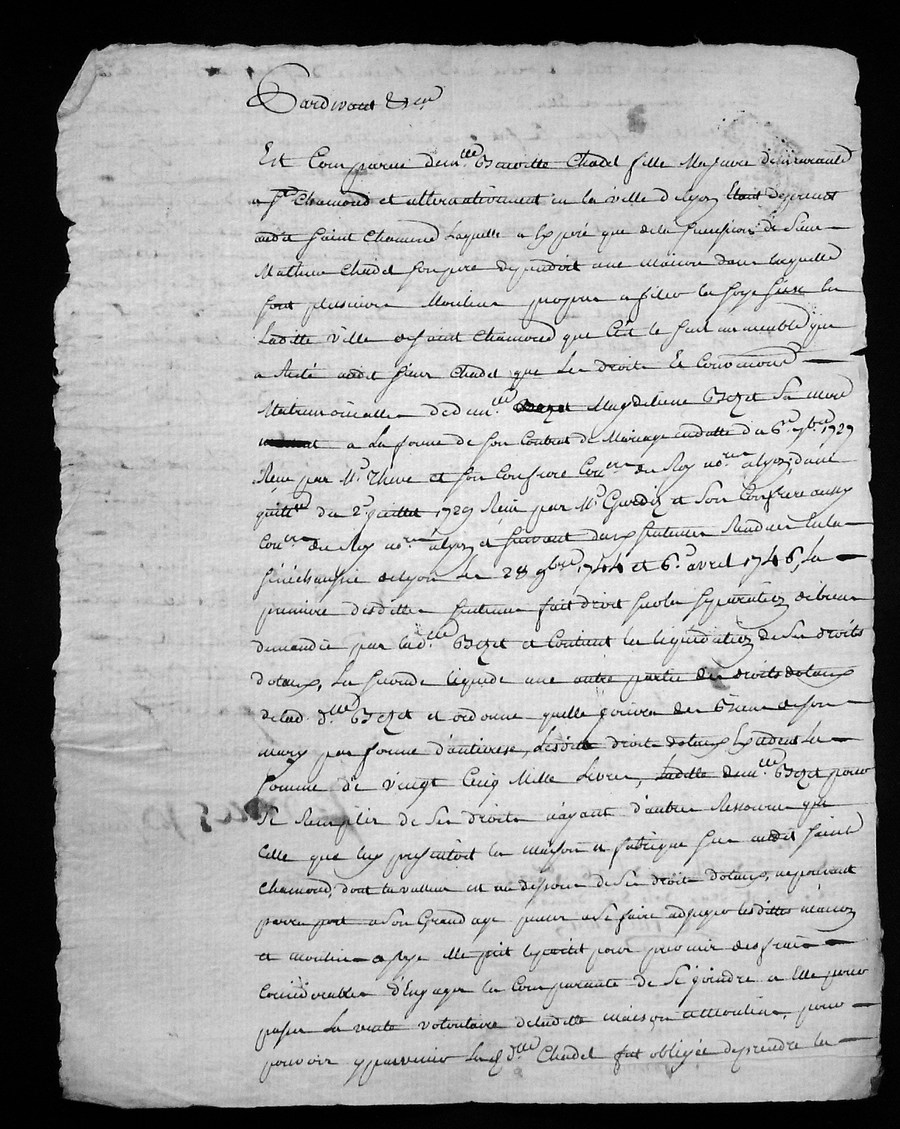 Pardevant &cr
Est Comparüe dem.lle Chadel fille Majeure demeurante
a St Chamond et alternativement en la ville de lyon Etant de present
audit saint Chamond Laquelle a Exposé que de la succession de Sieur
Mathieu Chadel son pere dependoit une maison dans laquelle
sont plusieurs Moulins propres a filer la soye sise en
Laditte ville de saint Chamond que C'est le seul immeuble que
a resté audit sieur Chadel que Les droits Et Conventions
Matrimonialles de dem.lle Magdeleine Bezet Sa mere
a La forme de son Contrat de Mariage en datte du 6e 1729
Reçu par Me Theve et son Confrere Con.ers du Roy no.res a lyon,
quitt.ce du 2e Juillet 1729 Reçu par Me Guedin et Son Confrere aussy
Con.ers du Roy no.res a lyon et suivant deux sentences Rendues en la
sénéchaussée de lyon les 28 9bre 1744 et 6e avril 1746, La
premiere desdittes sentences fait droit sur la separation de biens
demandée par lad.e d.lle Bezet et Contient la liquidation de Ses droits
dotaux, La seconde liquide une autre partie des droits dotaux
de lad. d.lle Bezet et ordonne quelle jouira des Biens de son
mary par forme d'antierese, Lesdits droits dotaux Excedens La
somme de vingt Cinq Mille Livres, Laditte dem.lle Bezet pour
Se Remplir de Ses droits n'ayant d'autres Ressources que
Celle que luy presentoit la maison et fabrique sur audit Saint
Chamond, dont la valleur est au dessous de Ses droits dotaux, ne pouvant
par raport a Son Grand age penser a Se faire adjuger lesdittes maison
et moulins a soye Elle prit le parti pour prevenir des frais
Considerables d'Engager la Comparante de Se joindre a Elle pour
passer La vente volontaire de laditte maison et Moulins, pour
pouvoir y parvenir Lad. d.lle Chadel fut obligée de prendre la